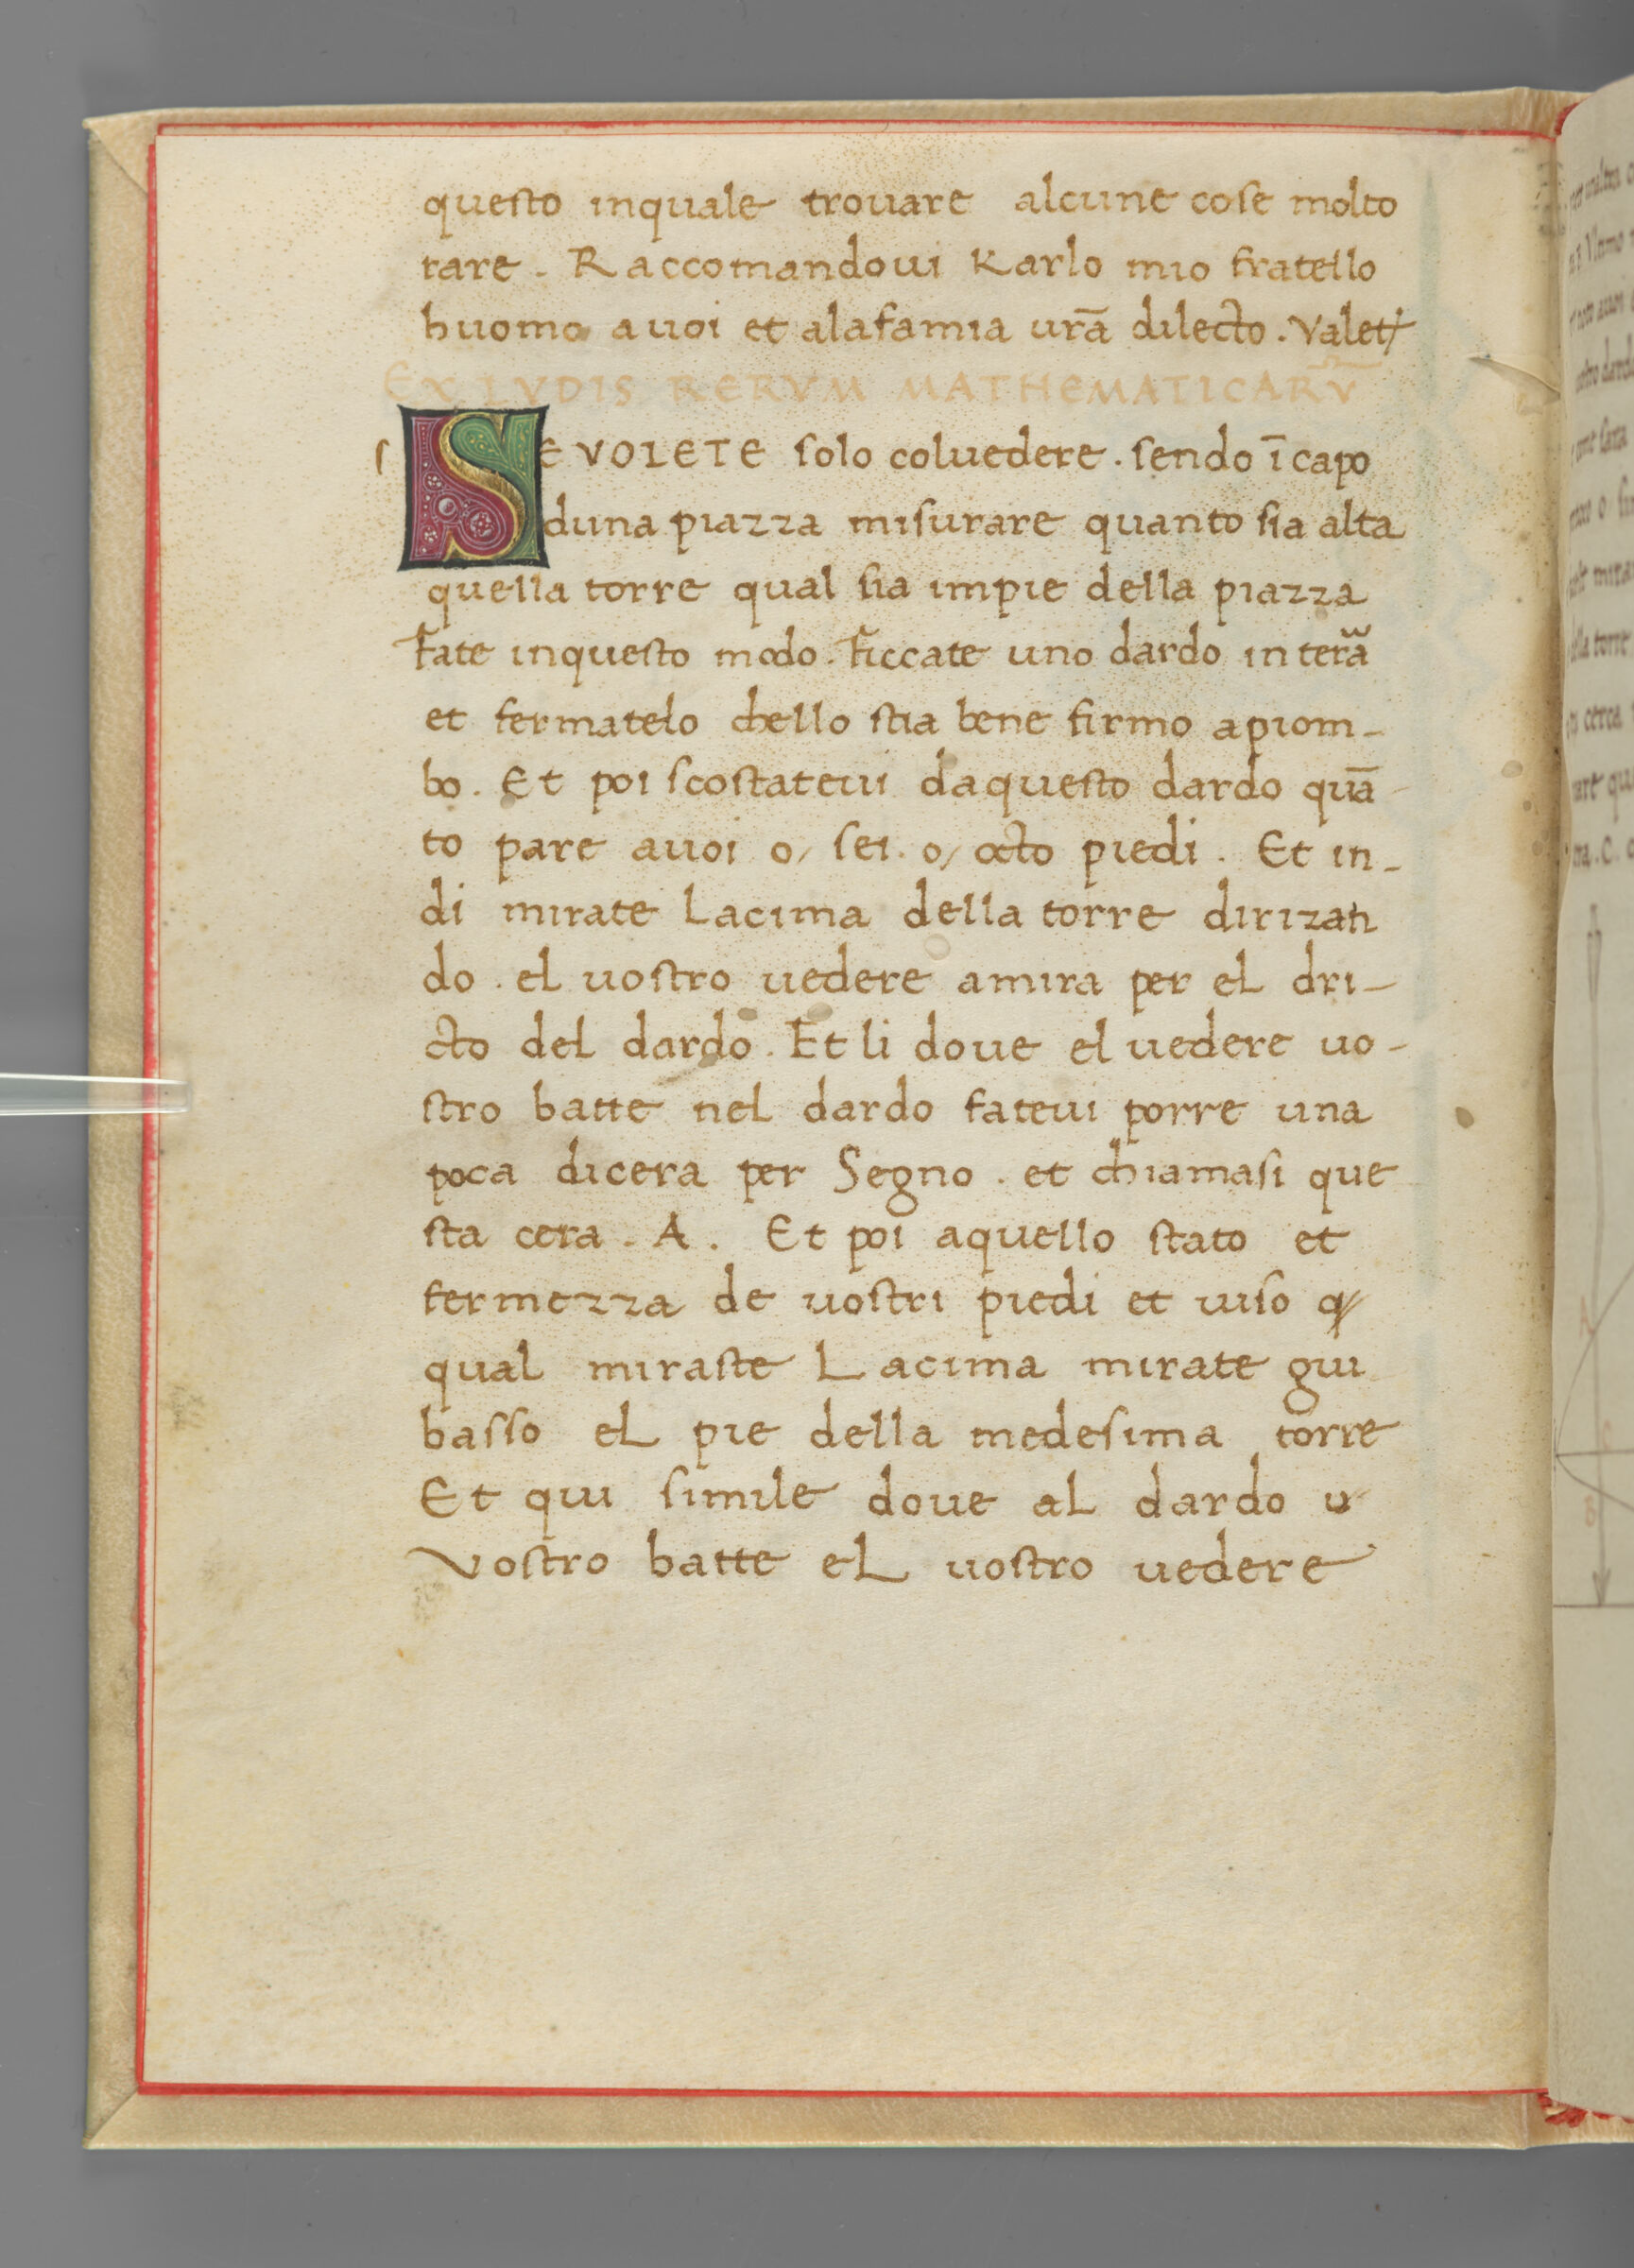 questo inquale trouare alcune cose molto
rare . Raccomandoui Karlo mio fratello
huomo auoi et alafamia ur̄a dilecto . Valet
EX LVDIS RERVM MATHEMATICARV̄
SE VOLETE solo coluedere . sendo ī capo
duna piazza misurare quanto sia alta
quella torre qual sia impie della piazza
Fate inquesto modo . Ficcate uno dardo in tera
et fermatelo chello stia bene firmo apiom-
bo . Et poi scostateui daquesto dardo quā
to pare auoi o/ sei . o/ octo piedi . Et in-
di mirate Lacima della torre dirizan
do . el uostro uedere amira per el dri-
cto del dardo . Et li doue el uedere uo-
stro batte nel dardo fateui porre una
poca dicera per Segno . et chiamasi que
sta cera . A . Et poi aquello stato et
fermezza de uostri piedi et uiso q
qual miraste Lacima mirate giu
basso el pie della medesima torre
Et qui simile doue al dardo u
Vostro batte el uostro uedere